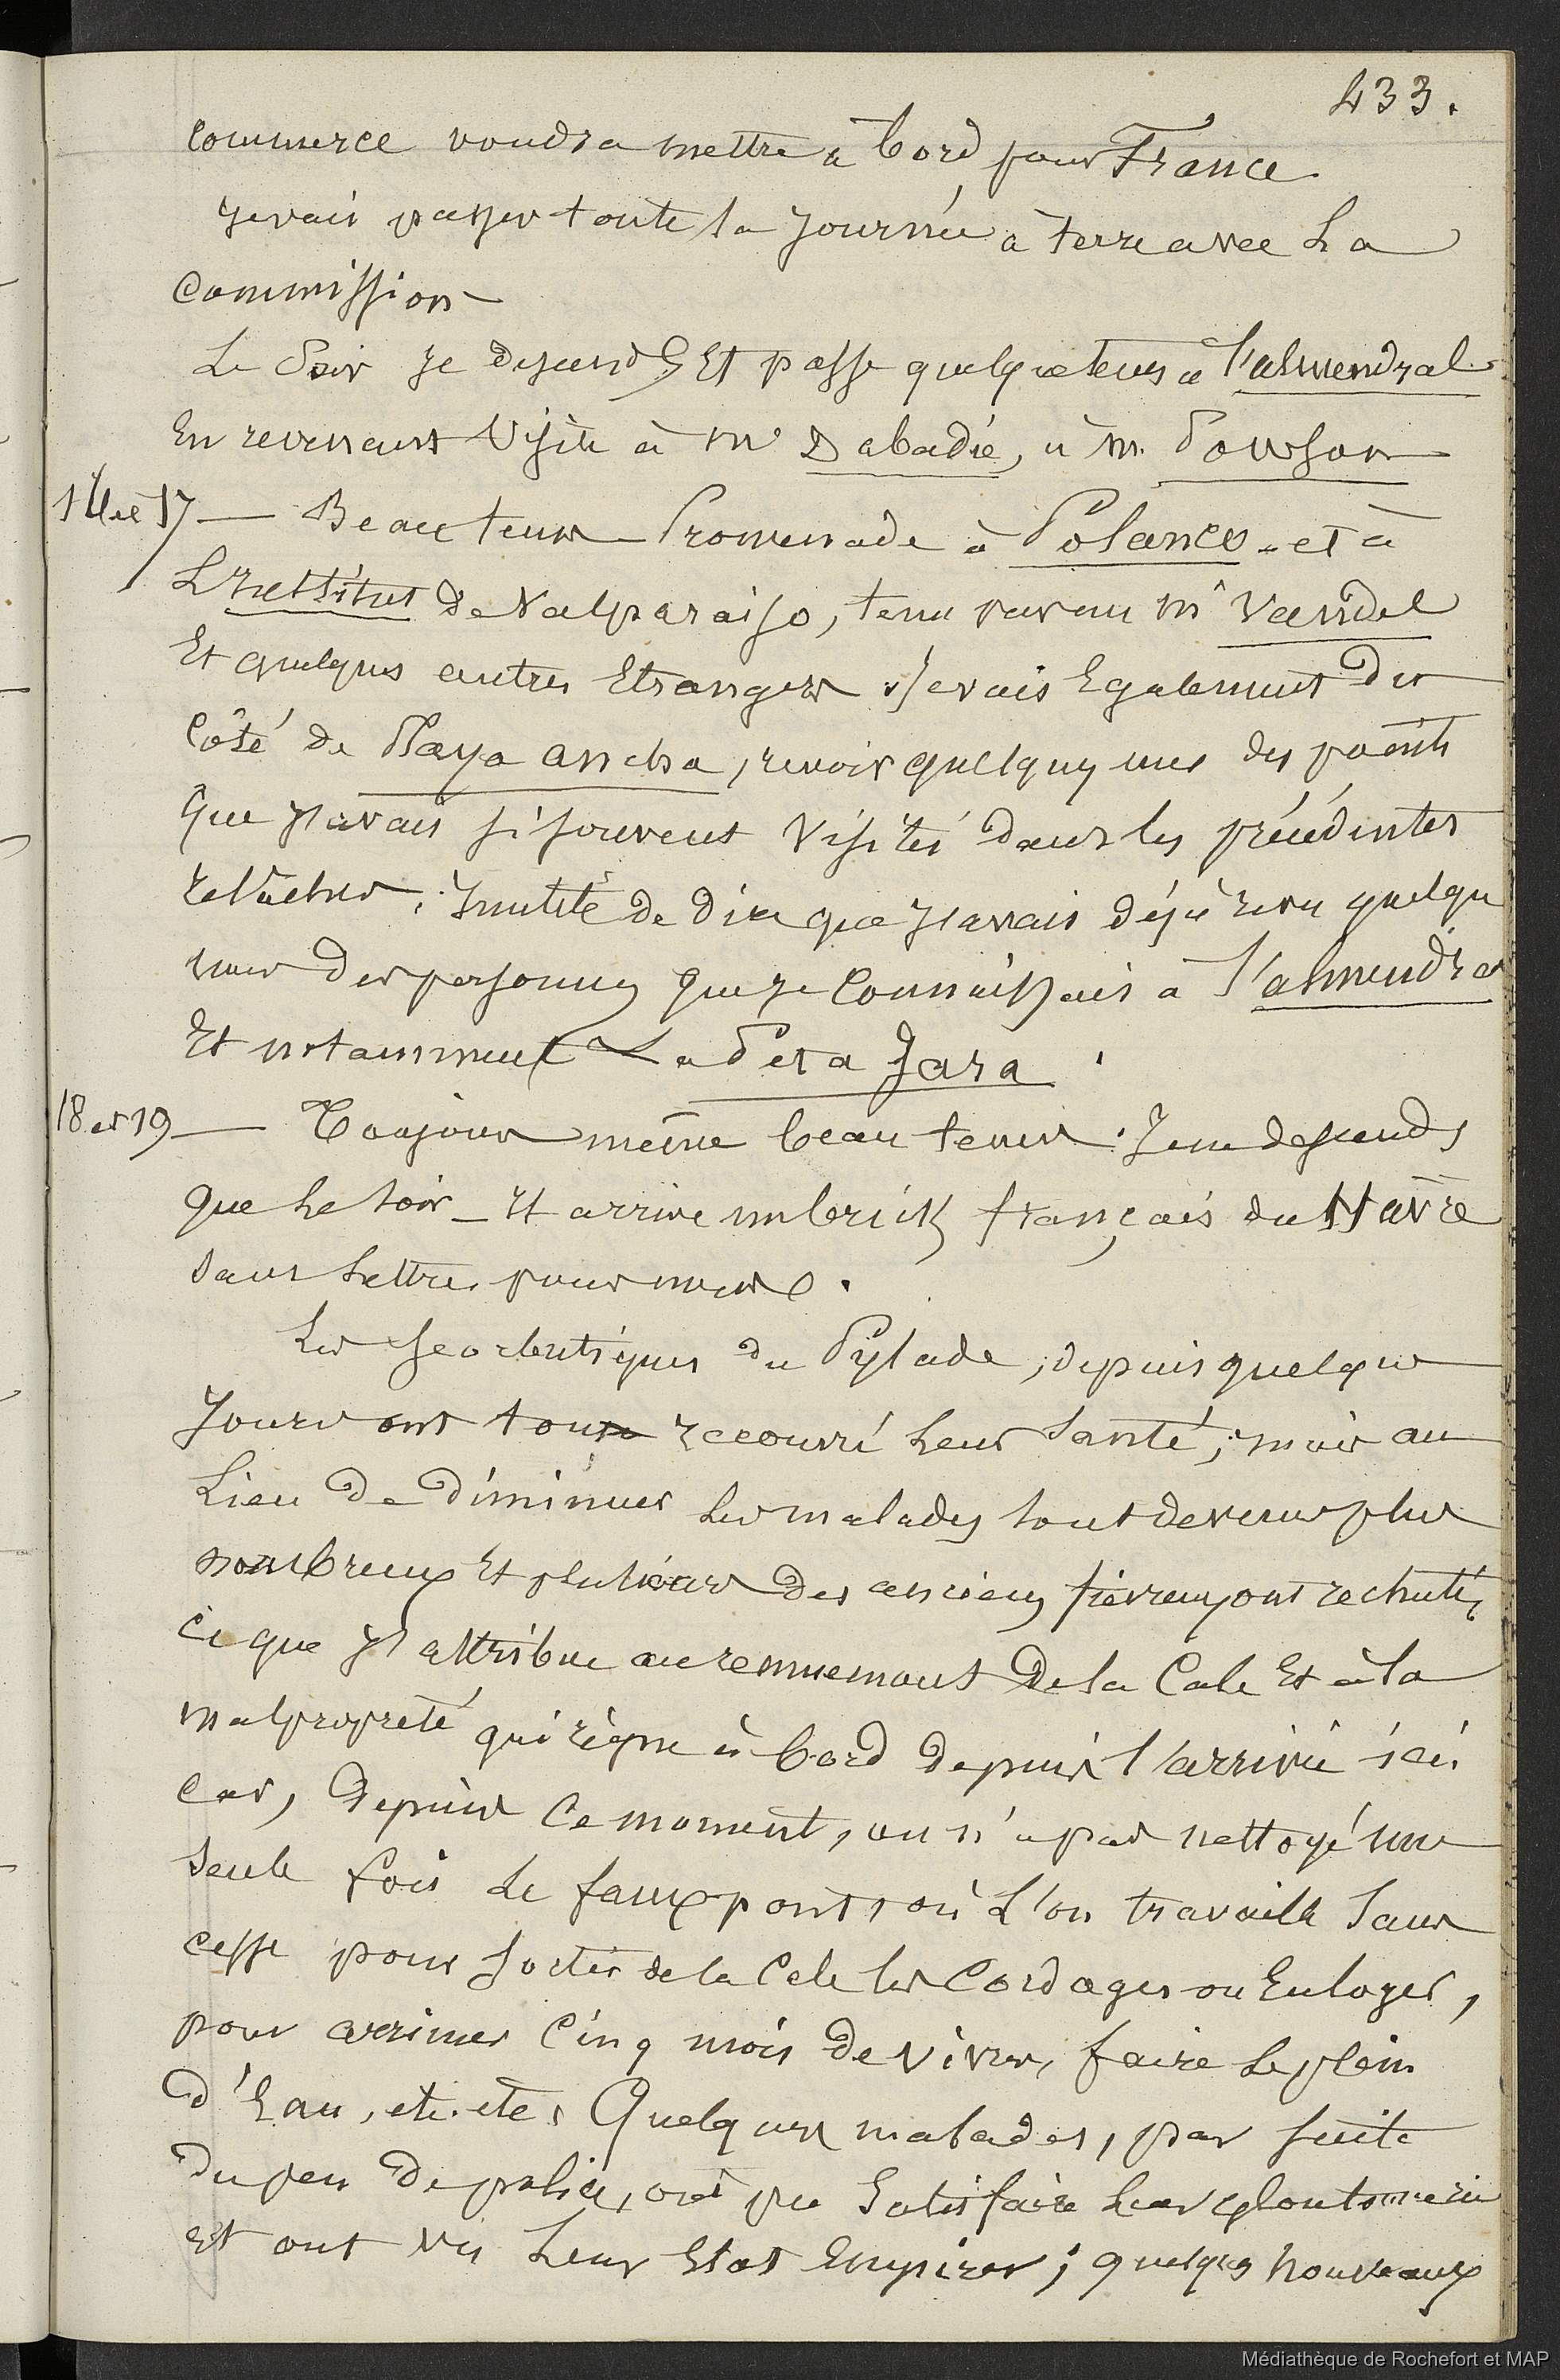 433.
Commerce voudra mettre à bord pour France.
Je vais passer toute la journée à terre avec La
Commission —
Le Soir je descends Et passe quelque tems à l'almendral
En revenant Visite à Mr Dabadie, à M.
17 — Beau tems — Promenade à Polanco - et à
L'Institut de Valparaiso, tenu par un Mr Vandel
Et quelques autres Etrangers. Je vais Egalement du
Côté de Playa ancha, revoir quelques unes des points
que j'avais si souvent Visités dans les précédentes
relâches. Inutile de dire que j'avais déjà revu quelqu
unes des personnes que je Connaissais à l'almendra
Et notamment La Peta Jara.
18 et 19 — Toujours même beau tems. Je ne descends
que le soir — Et arrive un brick français du Havre
sans Lettres pour
Les Scorbutiques du Pylade, depuis quelque
Jours ont tous recouvré leur Santé; mais au
Lieu De Diminuer les malades sont devenus plus
nombreux Et plusieurs des anciens fiévreux ont rechuté,
ce que j'attribue au remuement De la Cale Et à la
malpropreté qui règne à bord Depuis l'arrivée ici
car, Depuis Ce moment, on n'a pas nettoyé une
Seule fois Le faux pont, où L'on travaille Sans
cesse pour sortir de la Cale les Cordages ou Enloger,
pour arrimer Cinq mois De vivres, faire Le plein
D'Eau, etc. etc. Quelques malades, par suite
Du peu De police, ont pu Satisfaire leur gloutonnerie
et ont vu Leur Etat Empirer; quelques nouveaux
Médiathèque de Rochefort et MAP